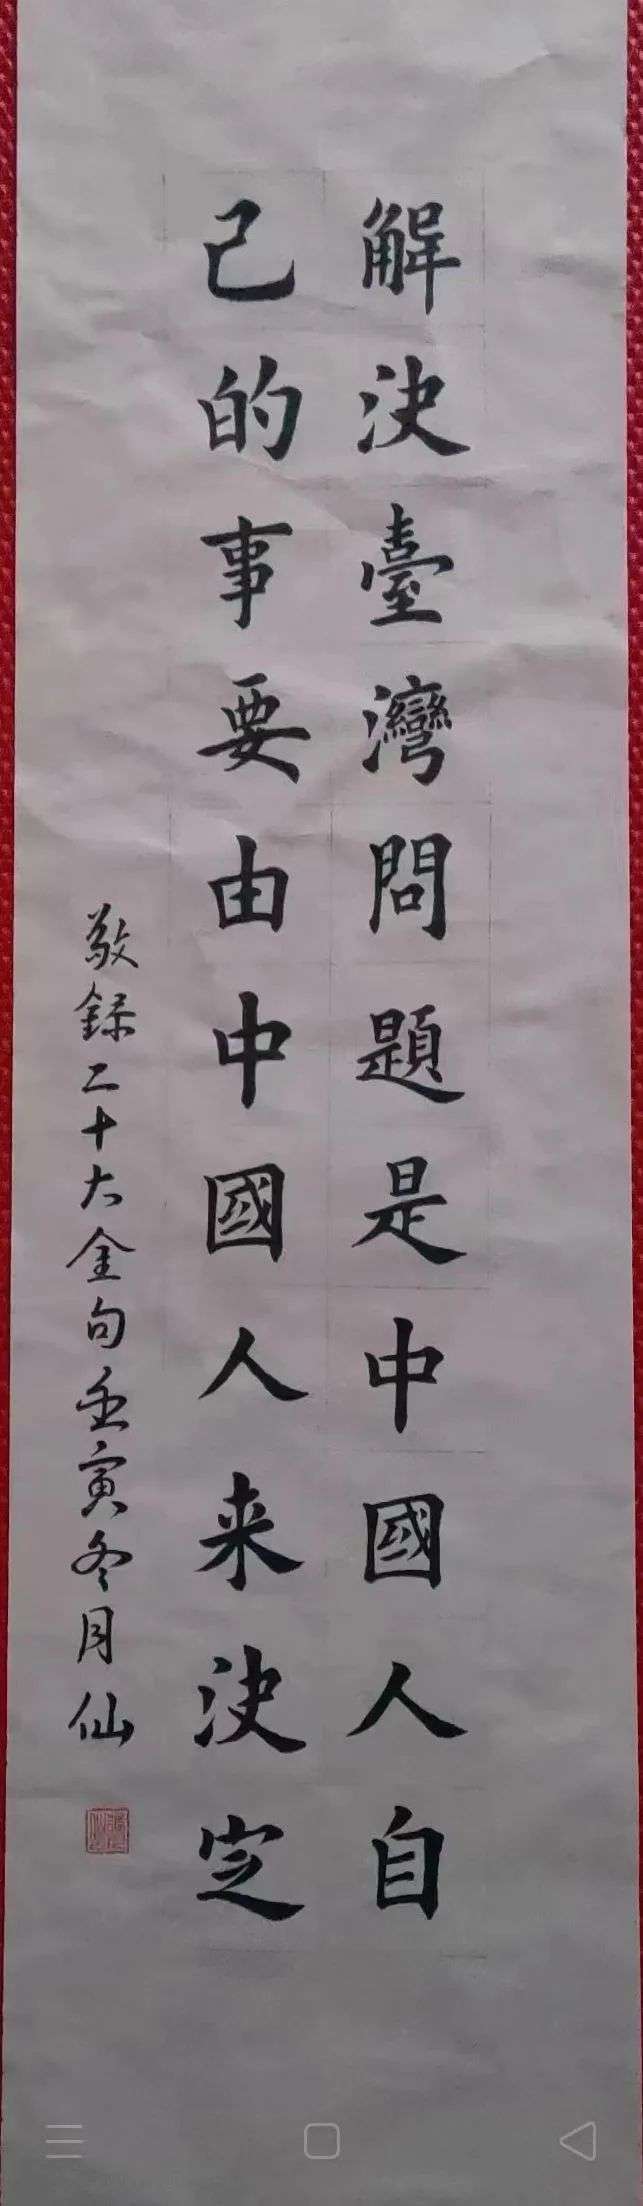 解決臺灣問題是中國人自
己的事要由中國人来決定
敬録二十大金句壬寅冬月仙